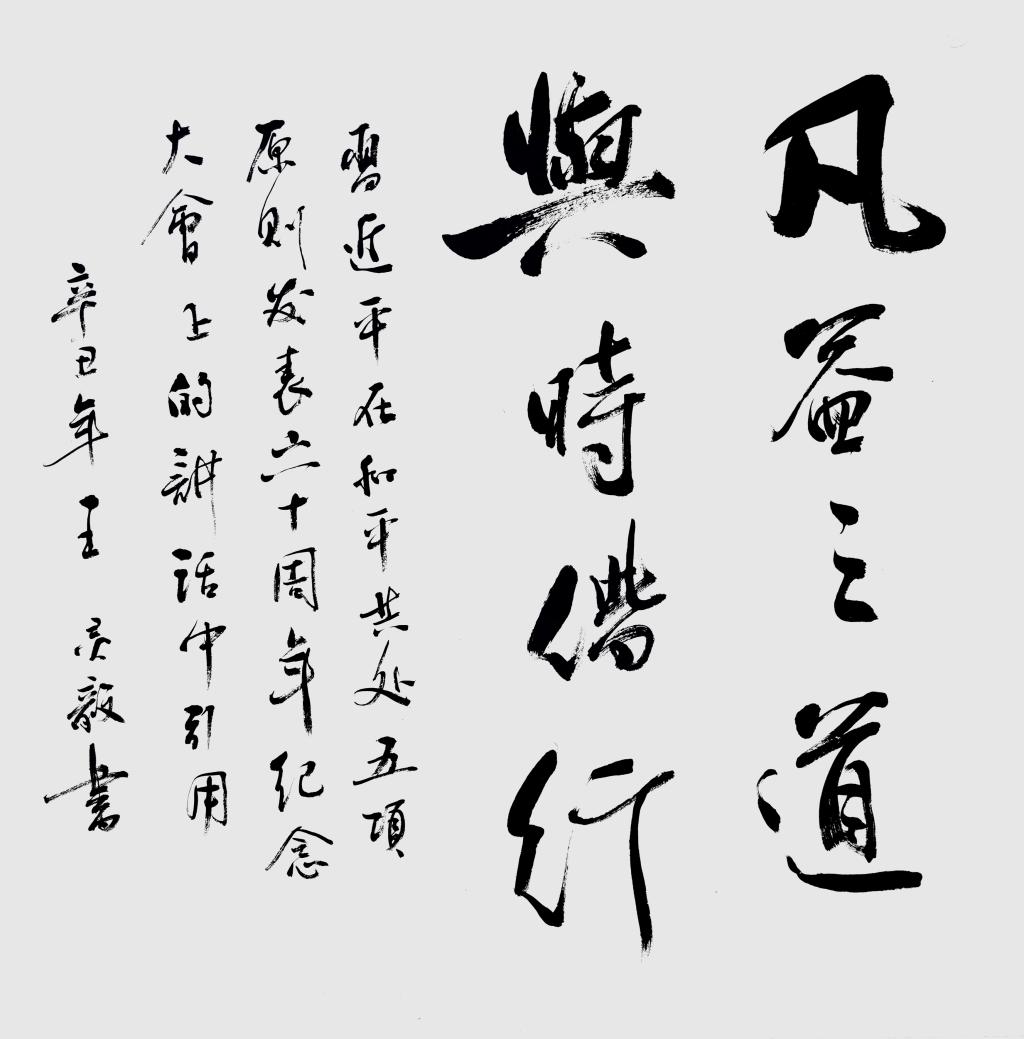 凡益之道
與時偕行
習近平在和平共处五項
原則发表六十周年纪念
大會上的講話中引用
辛丑年王灵毅書